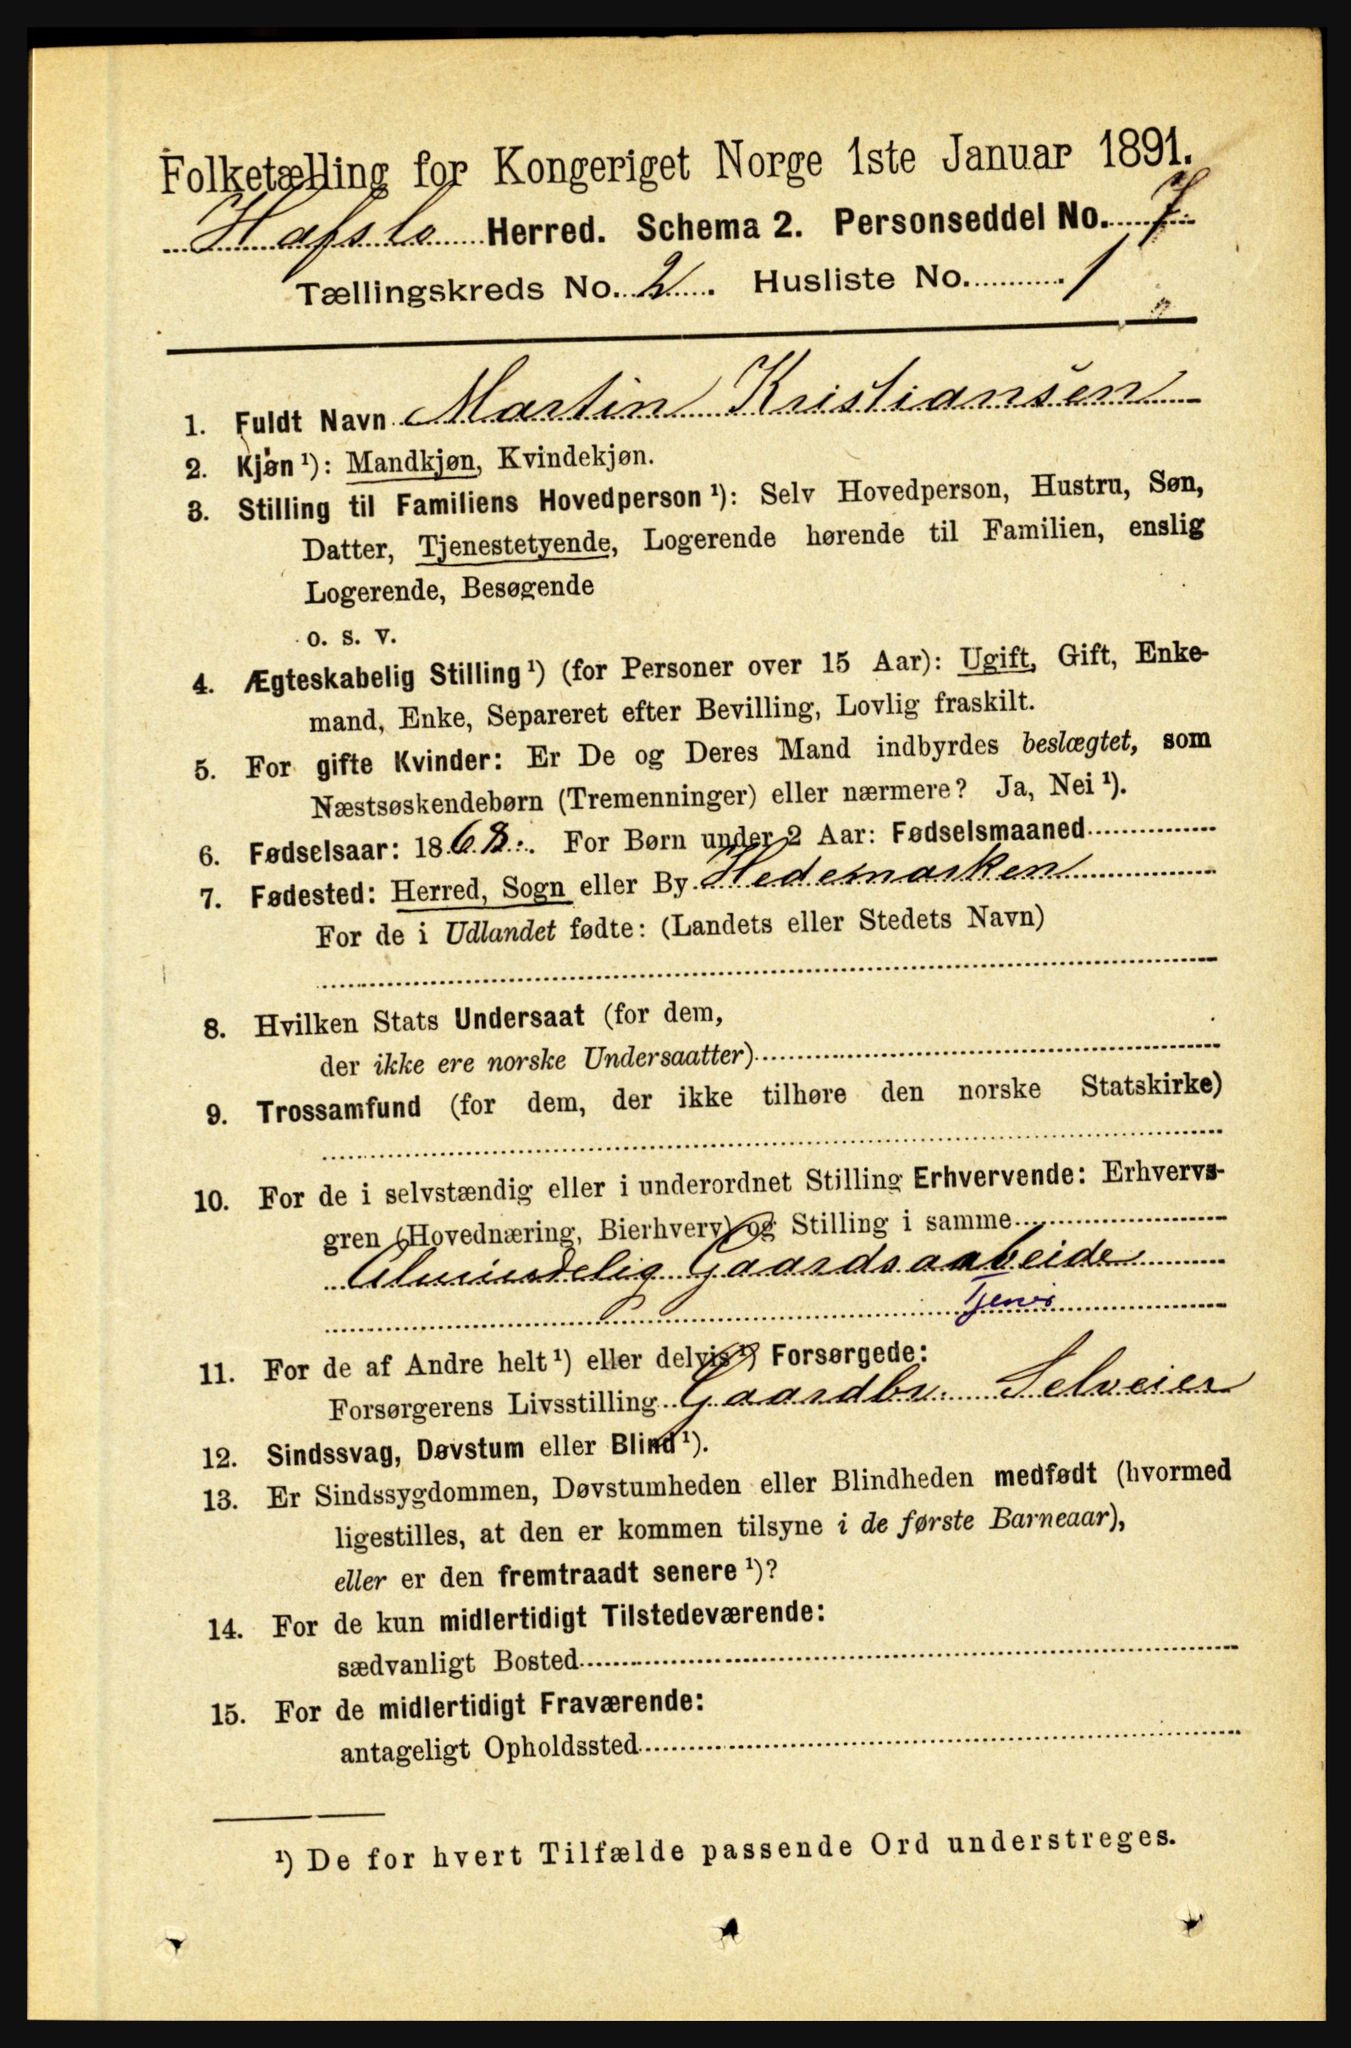 Folketælling for Kongeriget Norge 1ste Januar 1891.
Hafslo Herred. Schema 2. Personseddel No. 7
Tællingskreds No. 2. Husliste No. 1
1. Fuldt Navn Martin Kristiansen
2. Kjøn ¹): Mandkjøn, Kvindekjøn.
3. Stilling til Familiens Hovedperson ¹): Selv Hovedperson, Hustru, Søn,
Datter, Tjenestetyende, Logerende hørende til Familien, enslig
Logerende, Besøgende
o. s. v.
4. Ægteskabelig Stilling ¹) (for Personer over 15 Aar): Ugift, Gift, Enke-
mand, Enke, Separeret efter Bevilling, Lovlig fraskilt.
5. For gifte Kvinder: Er De og Deres Mand indbyrdes beslægtet, som
Næstsøskendebørn (Tremenninger) eller nærmere? Ja, Nei ¹).
6. Fødselsaar: 1868. For Børn under 2 Aar: Fødselsmaaned
7. Fødested: Herred, Sogn eller By Hedemarken
For de i Udlandet fødte: (Landets eller Stedets Navn)
8. Hvilken Stats Undersaat (for dem,
der ikke ere norske Undersaatter)
9. Trossamfund (for dem, der ikke tilhøre den norske Statskirke)
10. For de i selvstændig eller i underordnet Stilling Erhvervende: Erhvervs-
gren (Hovednæring, Bierhverv) og Stilling i samme
Almindelig Gaardsarbeide
Tjener
11. For de af Andre helt ¹) eller delvis ¹) Forsørgede:
Forsørgerens Livsstilling Gaardbr. Selveier
12. Sindssvag, Døvstum eller Blind ¹).
13. Er Sindssygdommen, Døvstumheden eller Blindheden medfødt (hvormed
ligestilles, at den er kommen tilsyne i de første Barneaar),
eller er den fremtraadt senere ¹)?
14. For de kun midlertidigt Tilstedeværende:
sædvanligt Bosted
15. For de midlertidigt Fraværende:
antageligt Opholdssted
¹) De for hvert Tilfælde passende Ord understreges.